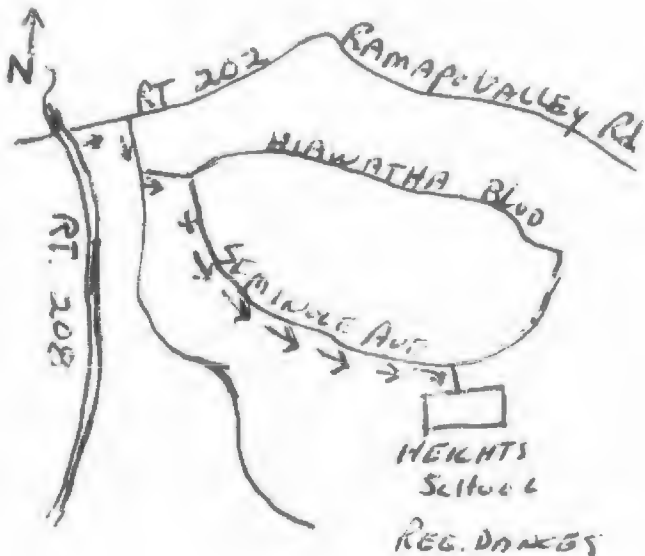 N
RT 202
RAMAPO VALLEY Rd
HIAWATHA BLVD
RT. 208
SEMINOLE AVE
HEIGHTS
SCHOOL
REG. DANCES